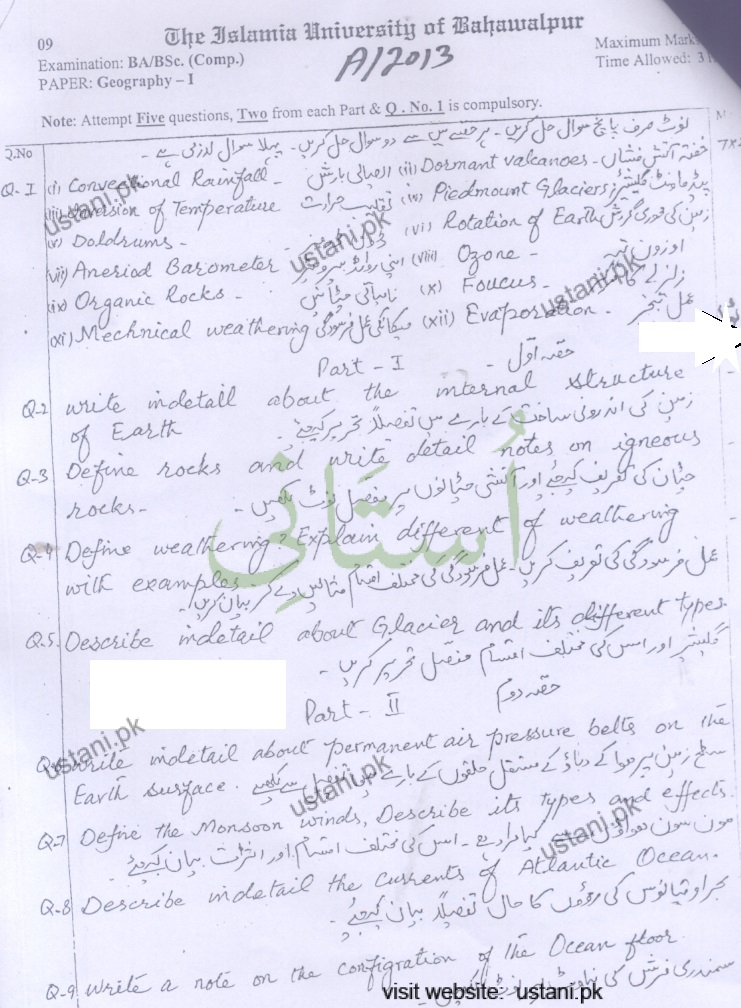 The Islamia University of Bahawalpur
09
A/2013
Examination: BA/BSc. (Comp.)
Maximum Mark
PAPER: Geography – I
Time Allowed: 3
Note: Attempt Five questions, Two from each Part & Q . No. 1 is compulsory.
Q.No
نوٹ صرف پانچ سوال حل کریں۔ ہر حصے میں سے دو سوال حل کریں۔ پہلا سوال لازمی ہے۔
Q-I (i) Conventional Rainfall - ایصالی بارش (ii) Dormant valcanoes - خفتہ آتش فشاں
of Temperature (iv) Piedmount Glaciers
(v) Doldrums - (vi) Rotation of Earth زمین کی محوری گردش
(vii) Aneriod Barometer (viii) Ozone - اوزون
(ix) Organic Rocks - نامیاتی چٹانیں (x) Foucus - زلزلے کا
(xi) Mechnical weathering میکانکی عمل فرسودگی (xii) Evaporation - عمل تبخیر
Part - I حصہ اول -
Q-2 write indetail about the internal structure
of Earth زمین کی اندرونی ساخت کے بارے میں تفصیلاً تحریر کیجئے۔
Q-3 Define rocks and write detail notes on igneous
rocks- چٹان کی تعریف کیجئے اور آتشی چٹانوں پر مفصل نوٹ لکھیں۔
اُستانی
Q-4 Define weathering? Explain different of weathering
with examples - عمل فرسودگی کی تعریف کریں۔ عمل فرسودگی کی مختلف اقسام مثالیں دے کر بیان کریں۔
Q.5 Describe indetail about Glacier and its different types.
گلیشیر اور اس کی مختلف اقسام مفصل تحریر کریں۔
Part - II حصہ دوم
write indetail about permanent air pressure belts on the
Earth surface. سطح زمین پر ہوا کے دباؤ کے مستقل حلقوں کے بارے میں تفصیل سے لکھیے
Q-7 Define the Monsoon winds, Describe its types and effects.
مون سون ہواؤں سے کیا مراد ہے۔ اس کی مختلف اقسام اور اثرات بیان کیجئے۔
Q-8 Describe indetail the currents of Atlantic Ocean.
بحر اوقیانوس کی رؤوں کا حال تفصیلاً بیان کیجئے۔
Q-9 write a note on the configration of the Ocean floor.
سمندری فرش کی
visit website: ustani.pk
ustani.pk
ustani.pk
ustani.pk
ustani.pk
ustani.pk
ustani.pk